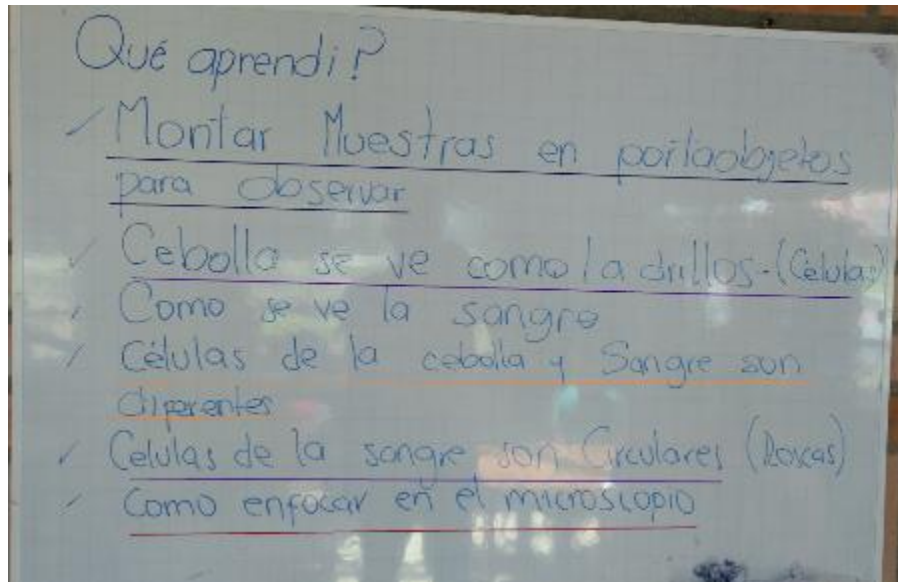 Qué aprendi?
✓ Montar Muestras en portaobjetos
para observar
✓ Cebolla se ve como la drillos-(Células)
✓ Como se ve la sangre
✓ Células de la cebolla y Sangre son
diferentes
✓ Celulas de la sangre son Circulares (Roscas)
✓ Como enfocar en el microscopio